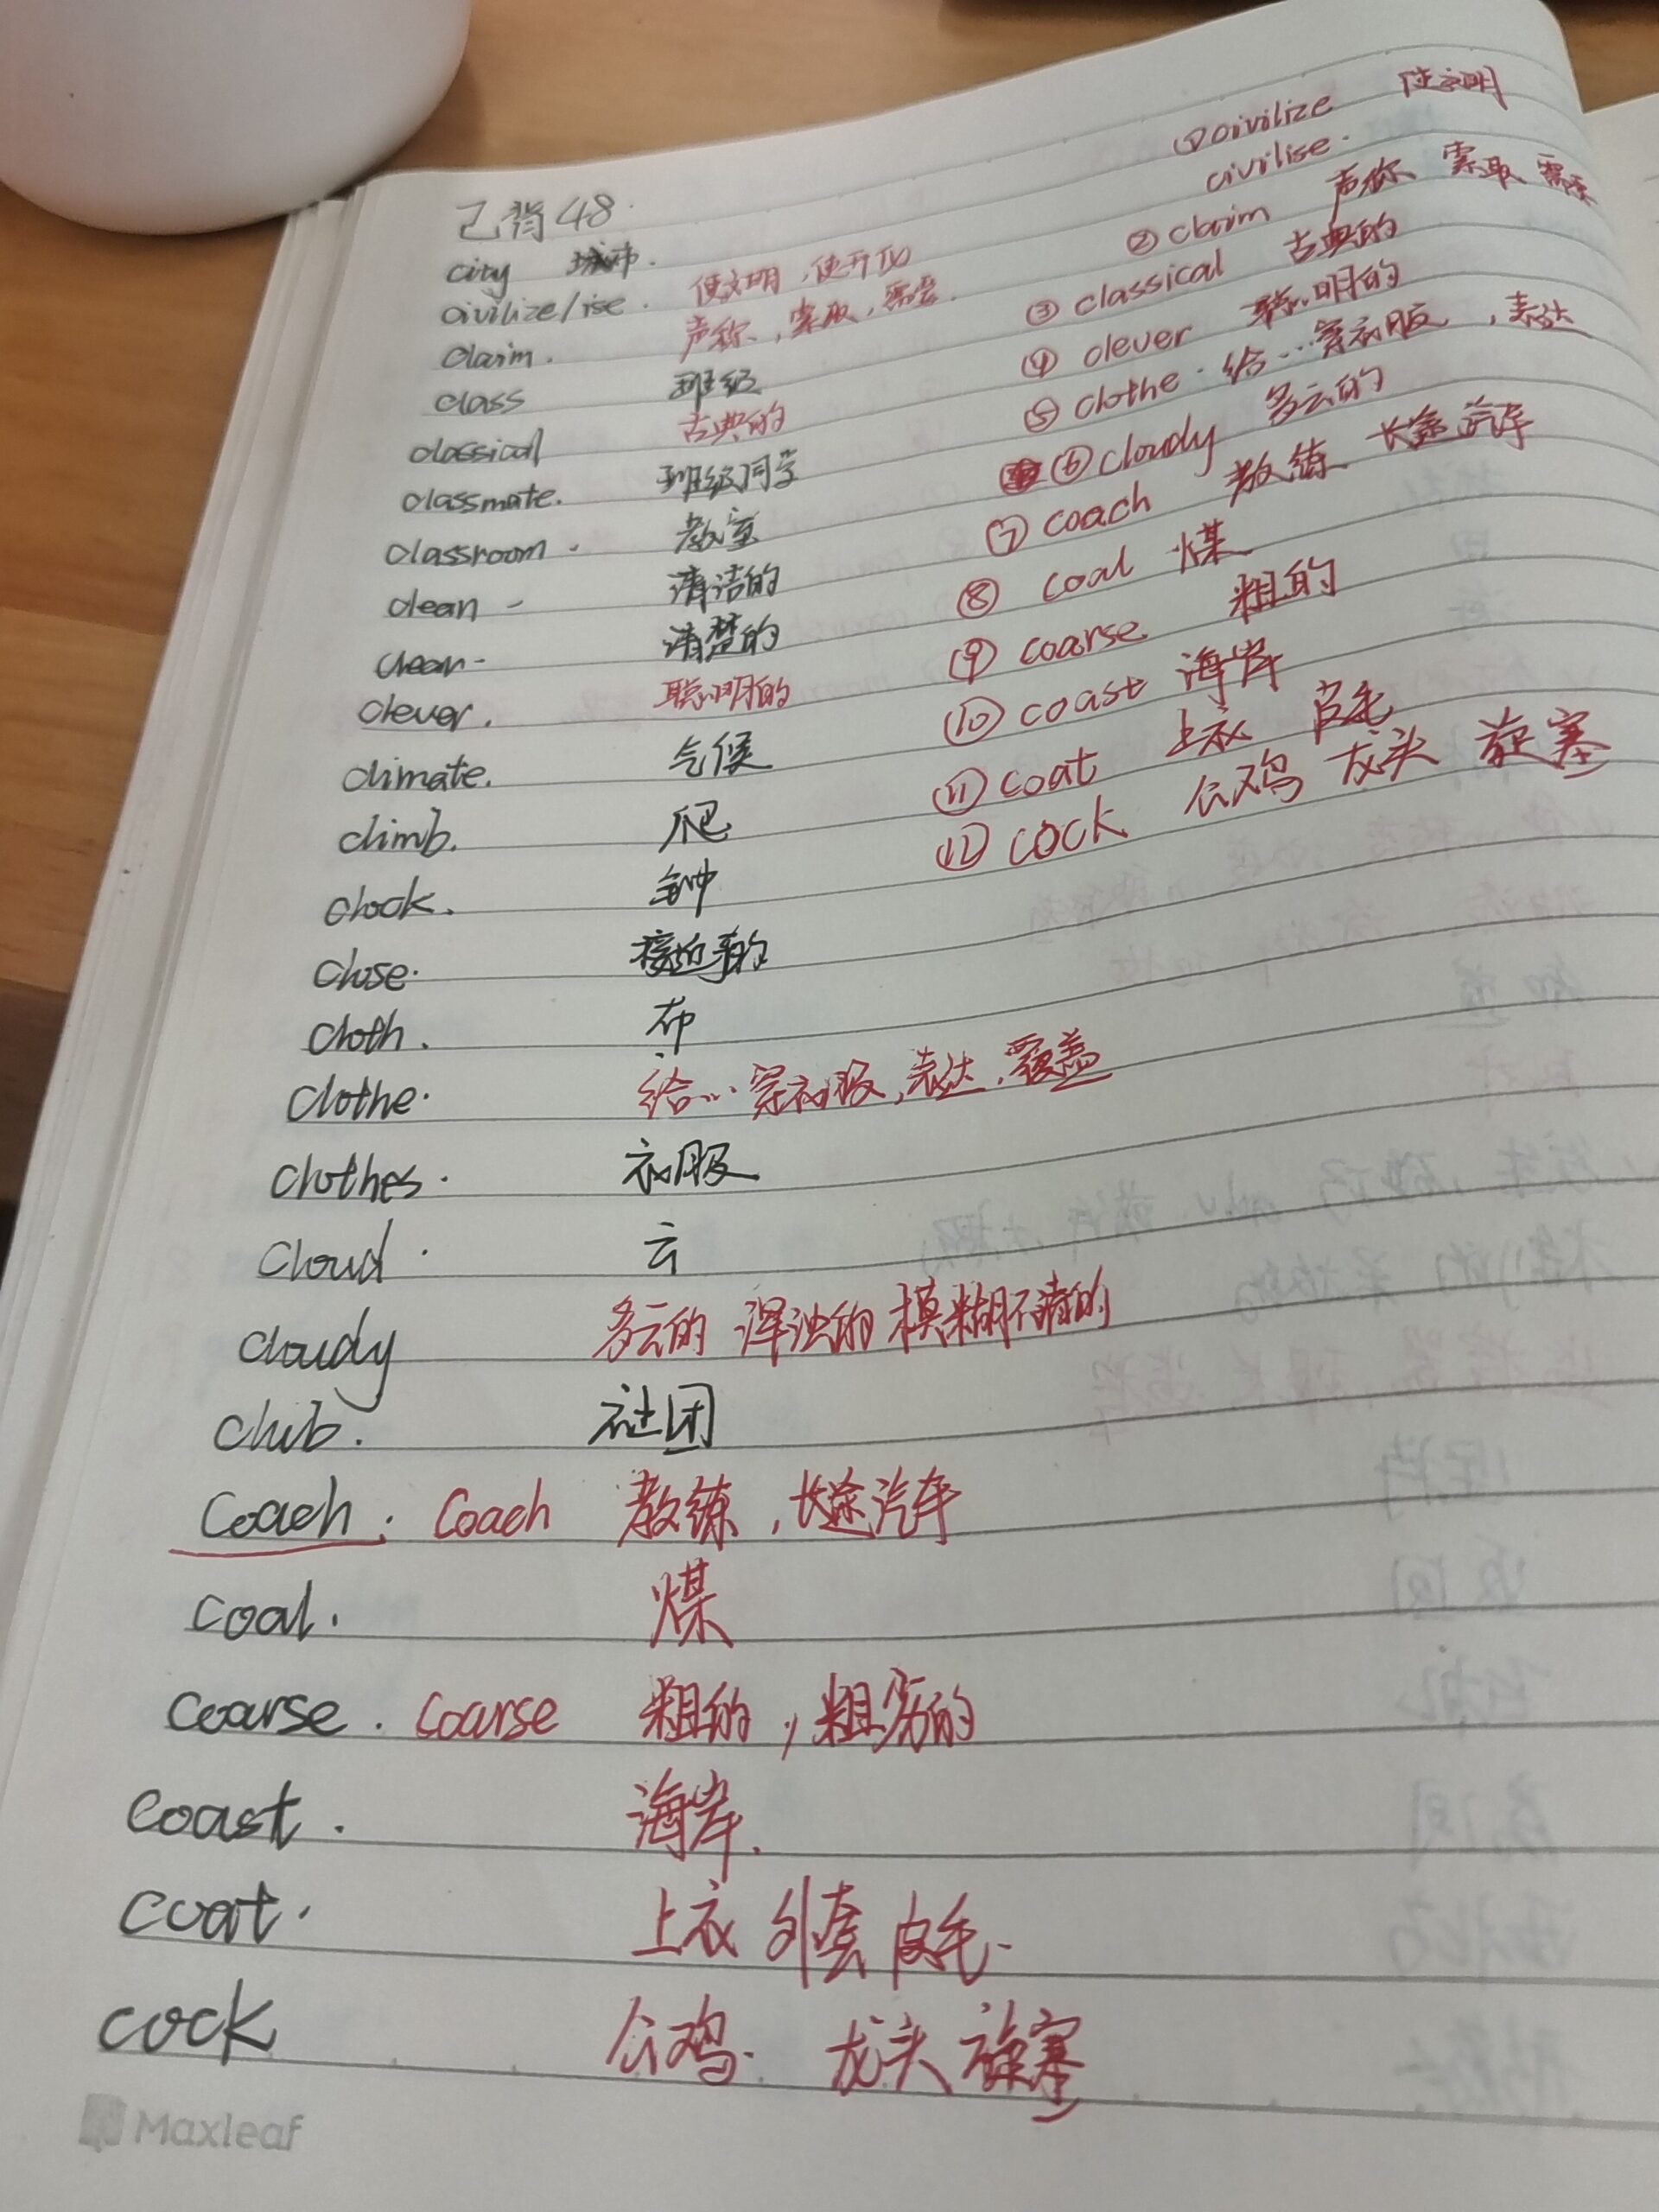 已背48.
city 城市.
civilize/ise. 使文明,使开化
claim. 声称,索取,需要.
class 班级
classical 古典的
classmate. 班级同学
classroom. 教室
clean - 清洁的
clear - 清楚的
clever. 聪明的
climate. 气候
climb. 爬
clock. 钟
close. 接近的
cloth. 布
clothe. 给…穿衣服,表达,覆盖
clothes. 衣服
cloud. 云
cloudy 多云的 浑浊的 模糊不清的
club. 社团
coach. coach 教练,长途汽车
coal. 煤
coarse. coarse 粗的,粗劣的
coast. 海岸.
coat. 上衣 外套 皮毛.
cock 公鸡. 龙头 旋塞
① civilize 使文明
civilise.
② claim 声称 索取 需要
③ classical 古典的
④ clever 聪明的
⑤ clothe. 给…穿衣服,表达
⑥ cloudy 多云的
⑦ coach 教练 长途汽车
⑧ coal 煤
⑨ coarse 粗的
⑩ coast 海岸
⑪ coat 上衣 皮毛
⑫ cock 公鸡 龙头 旋塞
Maxleaf